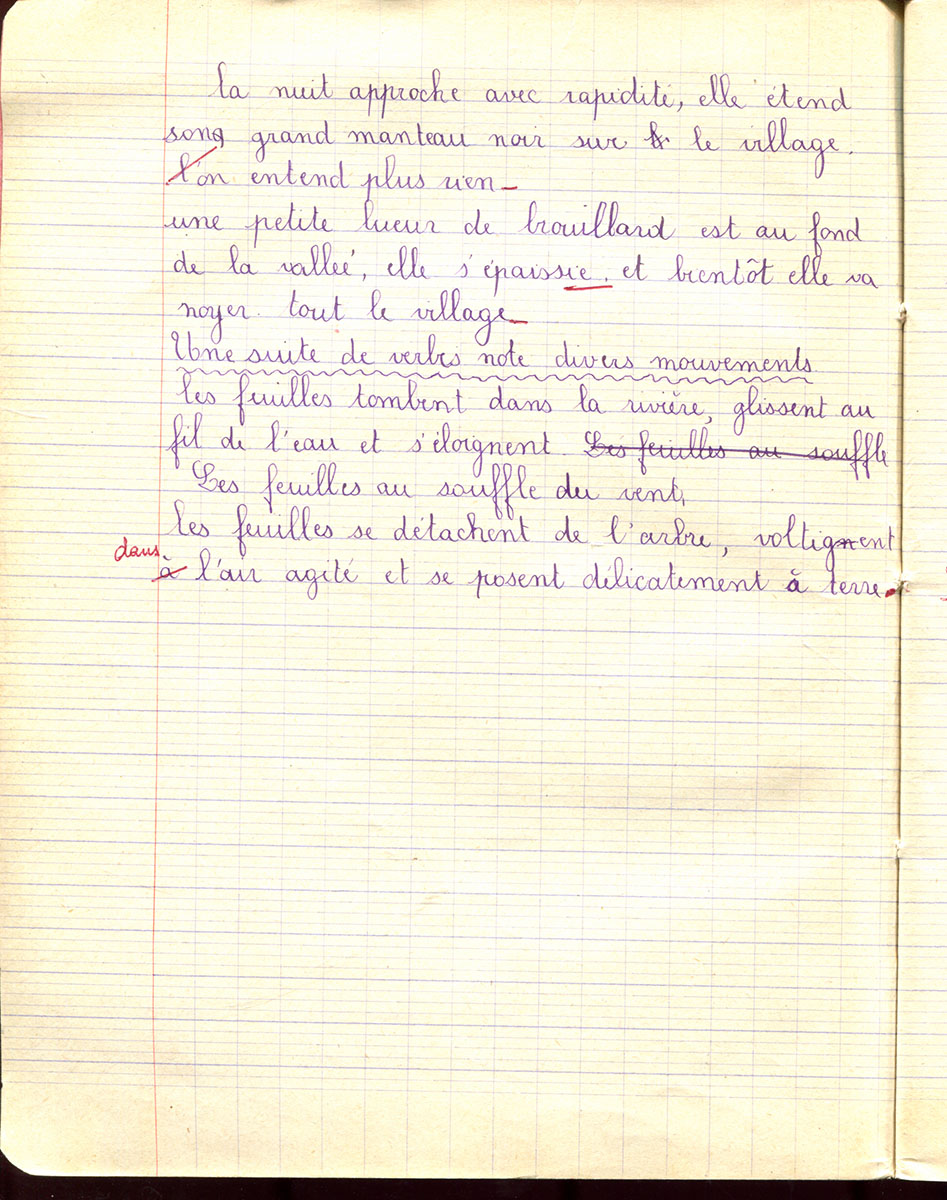 la nuit approche avec rapidité, elle étend
song grand manteau noir sur le village.
l'on entend plus rien
une petite lueur de brouillard est au fond
de la valleé, elle s'épaissie. et bientôt elle va
noyer tout le village
Une suite de verbes note divers mouvements
les feuilles tombent dans la rivière, glissent au
fil de l'eau et s'éloignent. Les feuilles au souffle
Les feuilles au souffle du vent,
les feuilles se détachent de l'arbre, voltignent
dans
à l'air agité et se posent délicatement à terre.